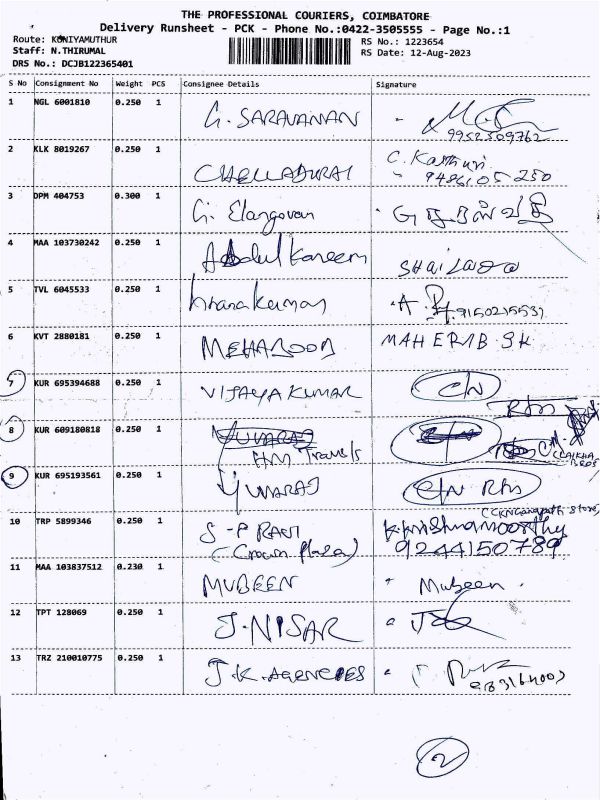 THE PROFESSIONAL COURIERS, COIMBATORE
Delivery Runsheet - PCK - Phone No.:0422-3505555 - Page No.:1
Route: KONIYAMUTHUR
Staff: N.THIRUMAL
DRS No.: DCJB122365401
RS No.: 1223654
RS Date: 12-Aug-2023
S No Consignment No Weight PCS Consignee Details Signature
1 NGL 6001810 0.250 1 G. SARAVANAN
9952509762
2 KLK 8019267 0.250 1 CHELLADURAI C. Kasthuri
9486105 250
3 DPM 404753 0.300 1 G. Elangovan
4 MAA 103730242 0.250 1 Abdul Kareem
5 TVL 6045533 0.250 1 A
6 KVT 2880181 0.250 1 MEHABOOB MAHERAB SK
7 KUR 695394688 0.250 1 VIJAYA KUMAR C/N
8 KUR 609180818 0.250 1 YUVARAJ
HM Travels
9 KUR 695193561 0.250 1 YUVARAJ C/N
10 TRP 5899346 0.250 1 S-P RAVI K.Krishnamoorthy
(Crown Plaza) 9244150789
11 MAA 103837512 0.230 1 MUBEEN Mubeen
12 TPT 128069 0.250 1 J.NISAR
13 TRZ 210010775 0.250 1 J.K. AGENCIES
2